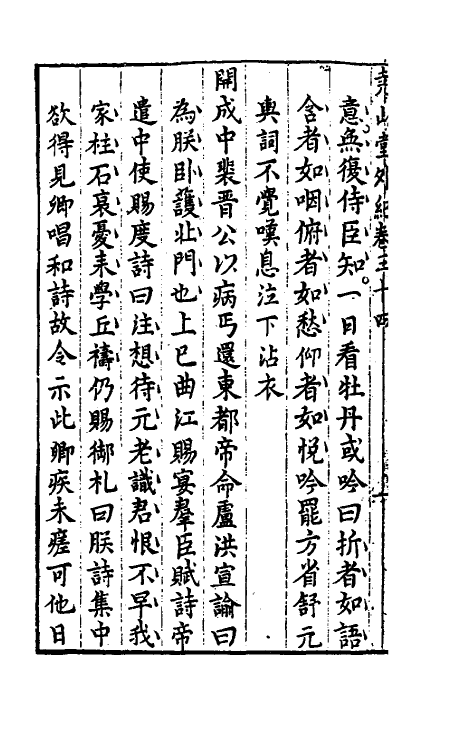 堯山堂外紀卷三十四
意無復侍臣知一日看牡丹或吟曰折者如語
含者如咽俯者如愁仰者如悅吟罷方省舒元
輿詞不覺嘆息泣下沾衣
開成中裴晋公以病丐還東都帝命盧洪宣諭曰
為朕卧護北門也上巳曲江賜宴羣臣賦詩帝
遣中使賜度詩曰注想待元老識君恨不早我
家柱石衰憂来學丘禱仍賜御札曰朕詩集中
欲得見卿唱和詩故令示此卿疾未瘥可他日